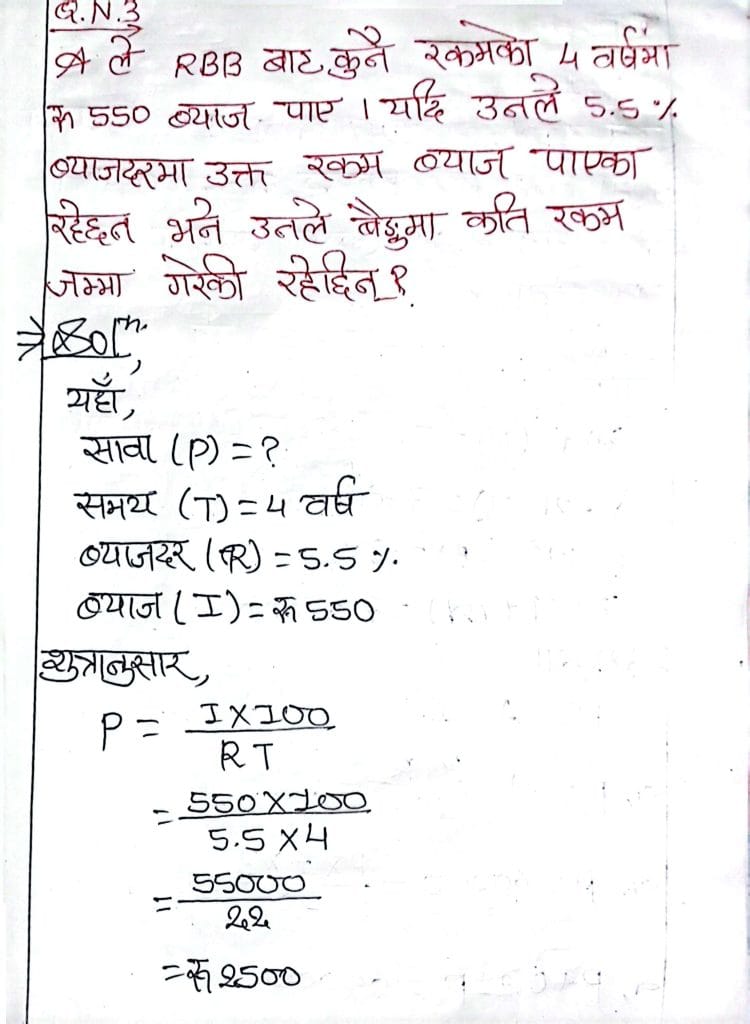 Q.N.3
A ले RBB बाट कुनै रकमको 4 वर्षमा
रू 550 ब्याज पाए । यदि उनले 5.5 %
ब्याजदरमा उक्त रकम ब्याज पाएका
रहेछन भने उनले बैङ्कमा कति रकम
जम्मा गरेकी रहेछिन् ?
⇒ Solⁿ,
यहाँ,
सावा (P) = ?
समय (T) = 4 वर्ष
ब्याजदर (R) = 5.5 %.
ब्याज (I) = रू 550
शुत्रानुसार,
P = I × 100
R T
= 550 × 100
5.5 × 4
= 55000
22
= रू 2500